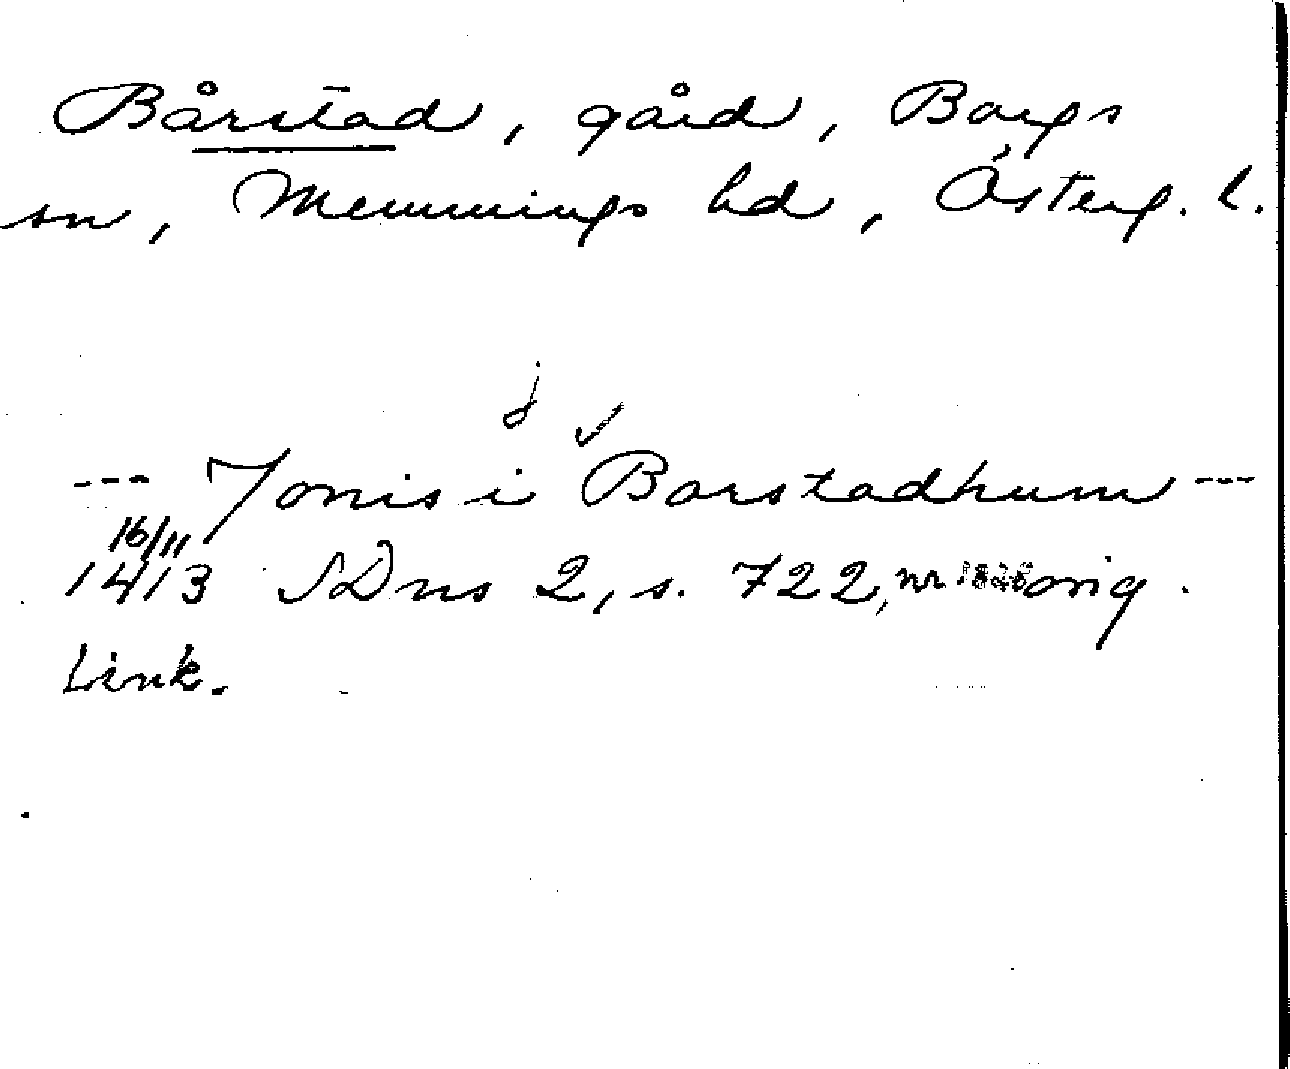 Bårstad, gård, Borgs
sn, Memmings hd, Österg. l.
--- Jonis i Borstadhum ---
16/11
1413 SDns 2, s. 722, nr 1828 orig.
Link.